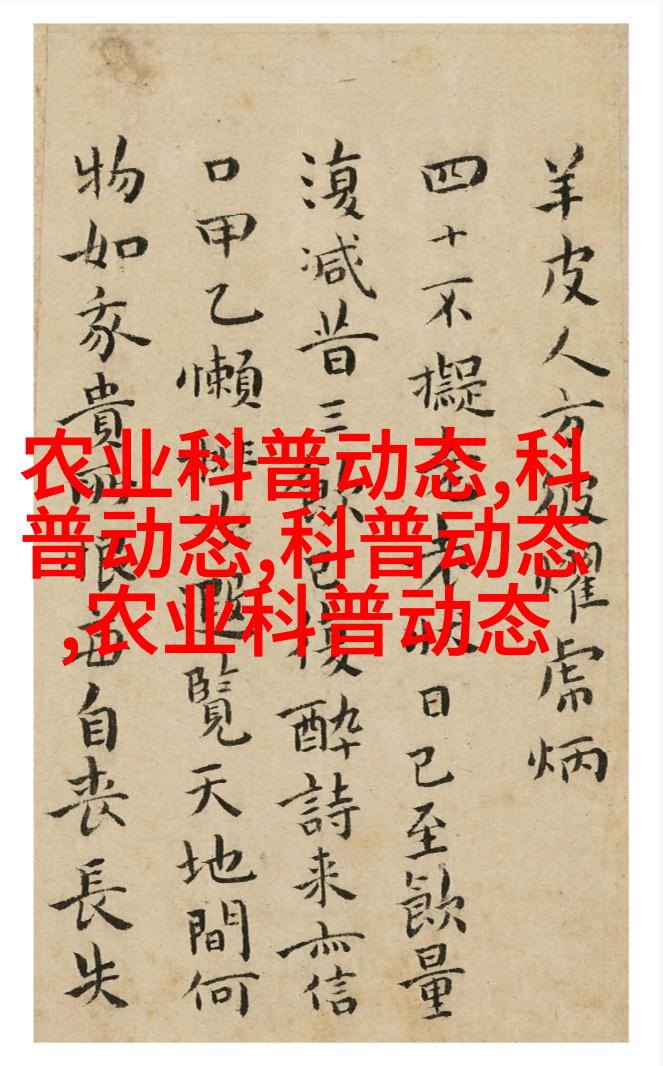 羊皮人方被耀虎炳
四十不擬老日已至飲量
復減昔三飲已復醉詩来亦信
口甲乙懶遐覽天地間何
物如我貴自喪長失
农业科普动态,科
普动态,科普动态
,农业科普动态